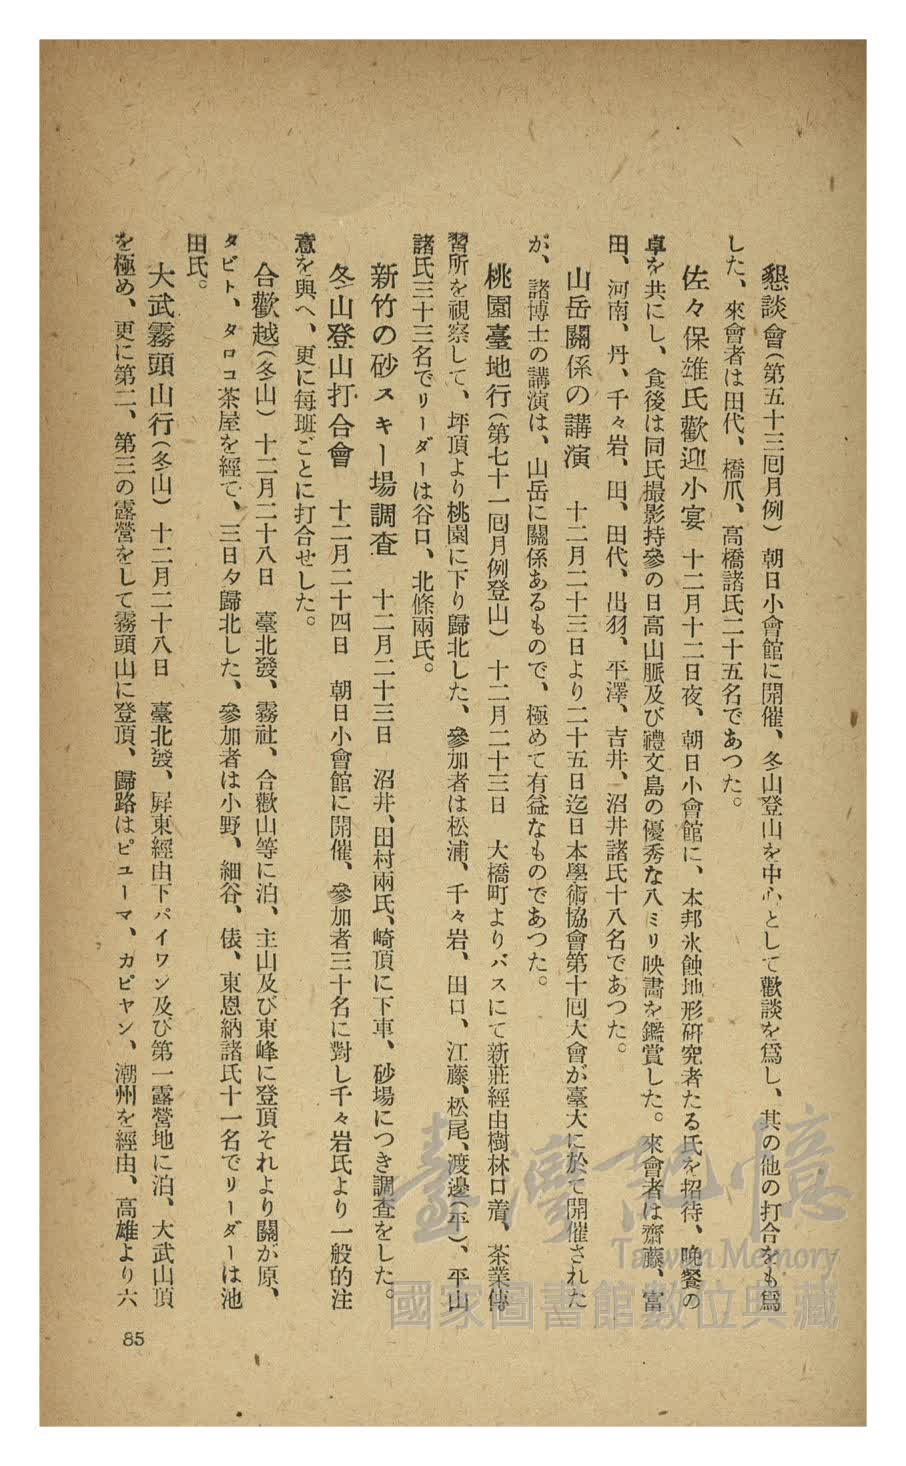 懇談會（第五十三囘月例）　朝日小會館に開催、冬山登山を中心として歡談を爲し、其の他の打合をも爲
した、來會者は田代、橋爪、高橋諸氏二十五名であつた。
佐々保雄氏歡迎小宴　十二月十二日夜、朝日小會館に、本邦氷蝕地形硏究者たる氏を招待、晩餐の
卓を共にし、食後は同氏撮影持參の日高山脈及び禮文島の優秀な八ミリ映畵を鑑賞した。來會者は齋藤、富
田、河南、丹、千々岩、田、田代、出羽、平澤、吉井、沼井諸氏十八名であつた。
山岳關係の講演　十二月二十三日より二十五日迄日本學術協會第十囘大會が臺大に於て開催された
が、諸博士の講演は、山岳に關係あるもので、極めて有益なものであつた。
桃園臺地行（第七十一囘月例登山）　十二月二十三日　大橋町よりバスにて新莊經由樹林口着、茶業傳
習所を視察して、坪頂より桃園に下り歸北した、參加者は松浦、千々岩、田口、江藤、松尾、渡邊（平）、平山
諸氏三十三名でリーダーは谷口、北條兩氏。
新竹の砂スキー場調査　十二月二十三日　沼井、田村兩氏、崎頂に下車、砂場につき調査をした。
冬山登山打合會　十二月二十四日　朝日小會館に開催、參加者三十名に對し千々岩氏より一般的注
意を與へ、更に每班ごとに打合せした。
合歡越（冬山）　十二月二十八日　臺北發、霧社、合歡山等に泊、主山及び東峰に登頂それより關が原、
タビト、タロコ茶屋を經て、三日夕歸北した、參加者は小野、細谷、俵、東恩納諸氏十一名でリーダーは池
田氏。
大武霧頭山行（冬山）　十二月二十八日　臺北發、屛東經由下パイワン及び第一露營地に泊、大武山頂
を極め、更に第二、第三の露營をして霧頭山に登頂、歸路はピユーマ、カピヤン、潮州を經由、高雄より六
85
臺灣記憶
Taiwan Memory
國家圖書館數位典藏